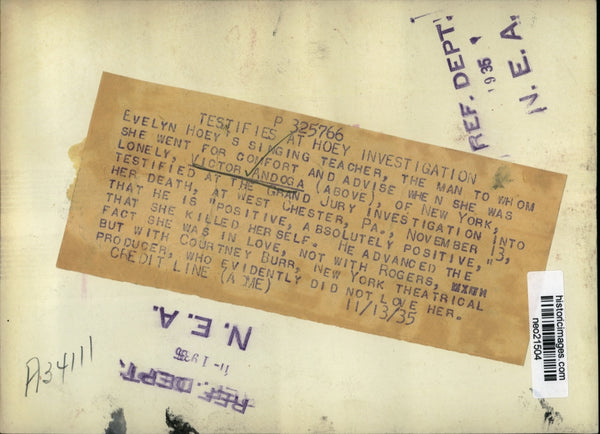 P 325766
TESTIFIES AT HOEY INVESTIGATION
EVELYN HOEY'S SINGING TEACHER, THE MAN TO WHOM
SHE WENT FOR COMFORT AND ADVISE WHEN SHE WAS
LONELY, VICTOR ANDOGA (ABOVE), OF NEW YORK,
TESTIFIED AT THE GRAND JURY INVESTIGATION INTO
HER DEATH, AT WEST CHESTER, PA., NOVEMBER 13,
THAT HE IS "POSITIVE, ABSOLUTELY POSITIVE,"
THAT SHE KILLED HERSELF. HE ADVANCED THE
FACT SHE WAS IN LOVE, NOT WITH ROGERS,
BUT WITH COURTNEY BURR, NEW YORK THEATRICAL
PRODUCER, WHO EVIDENTLY DID NOT LOVE HER.
CREDIT LINE (ACME) 11/13/35
REF. DEPT.
1935
N. E. A.
REF. DEPT.
1935
N. E. A.
A34111
historicimages.com
neo21504